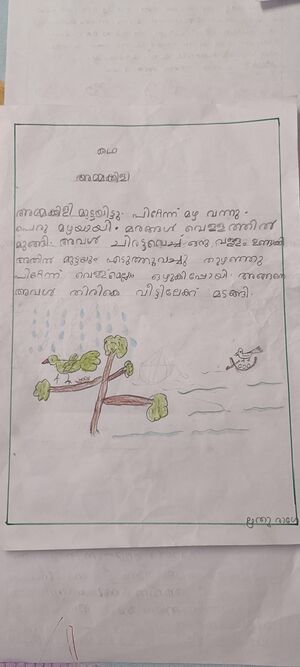 കഥ
അമ്മക്കിളി
അമ്മക്കിളി മുട്ടയിട്ടു. പിന്നീട് മഴ വന്നു.
പെരു മഴയായി. മരങ്ങൾ വെള്ളത്തിൽ
മുങ്ങി. അവൾ ചിരട്ടവെച്ച് ഒരു വള്ളം ഉണ്ടാക്കി
അതിൽ മുട്ടയും എടുത്തുവച്ചു തുഴഞ്ഞു
പിന്നീട് വെള്ളമെല്ലാം ഒഴുകിപ്പോയി അങ്ങനെ
അവൾ തിരികെ വീട്ടിലേക്ക് മടങ്ങി